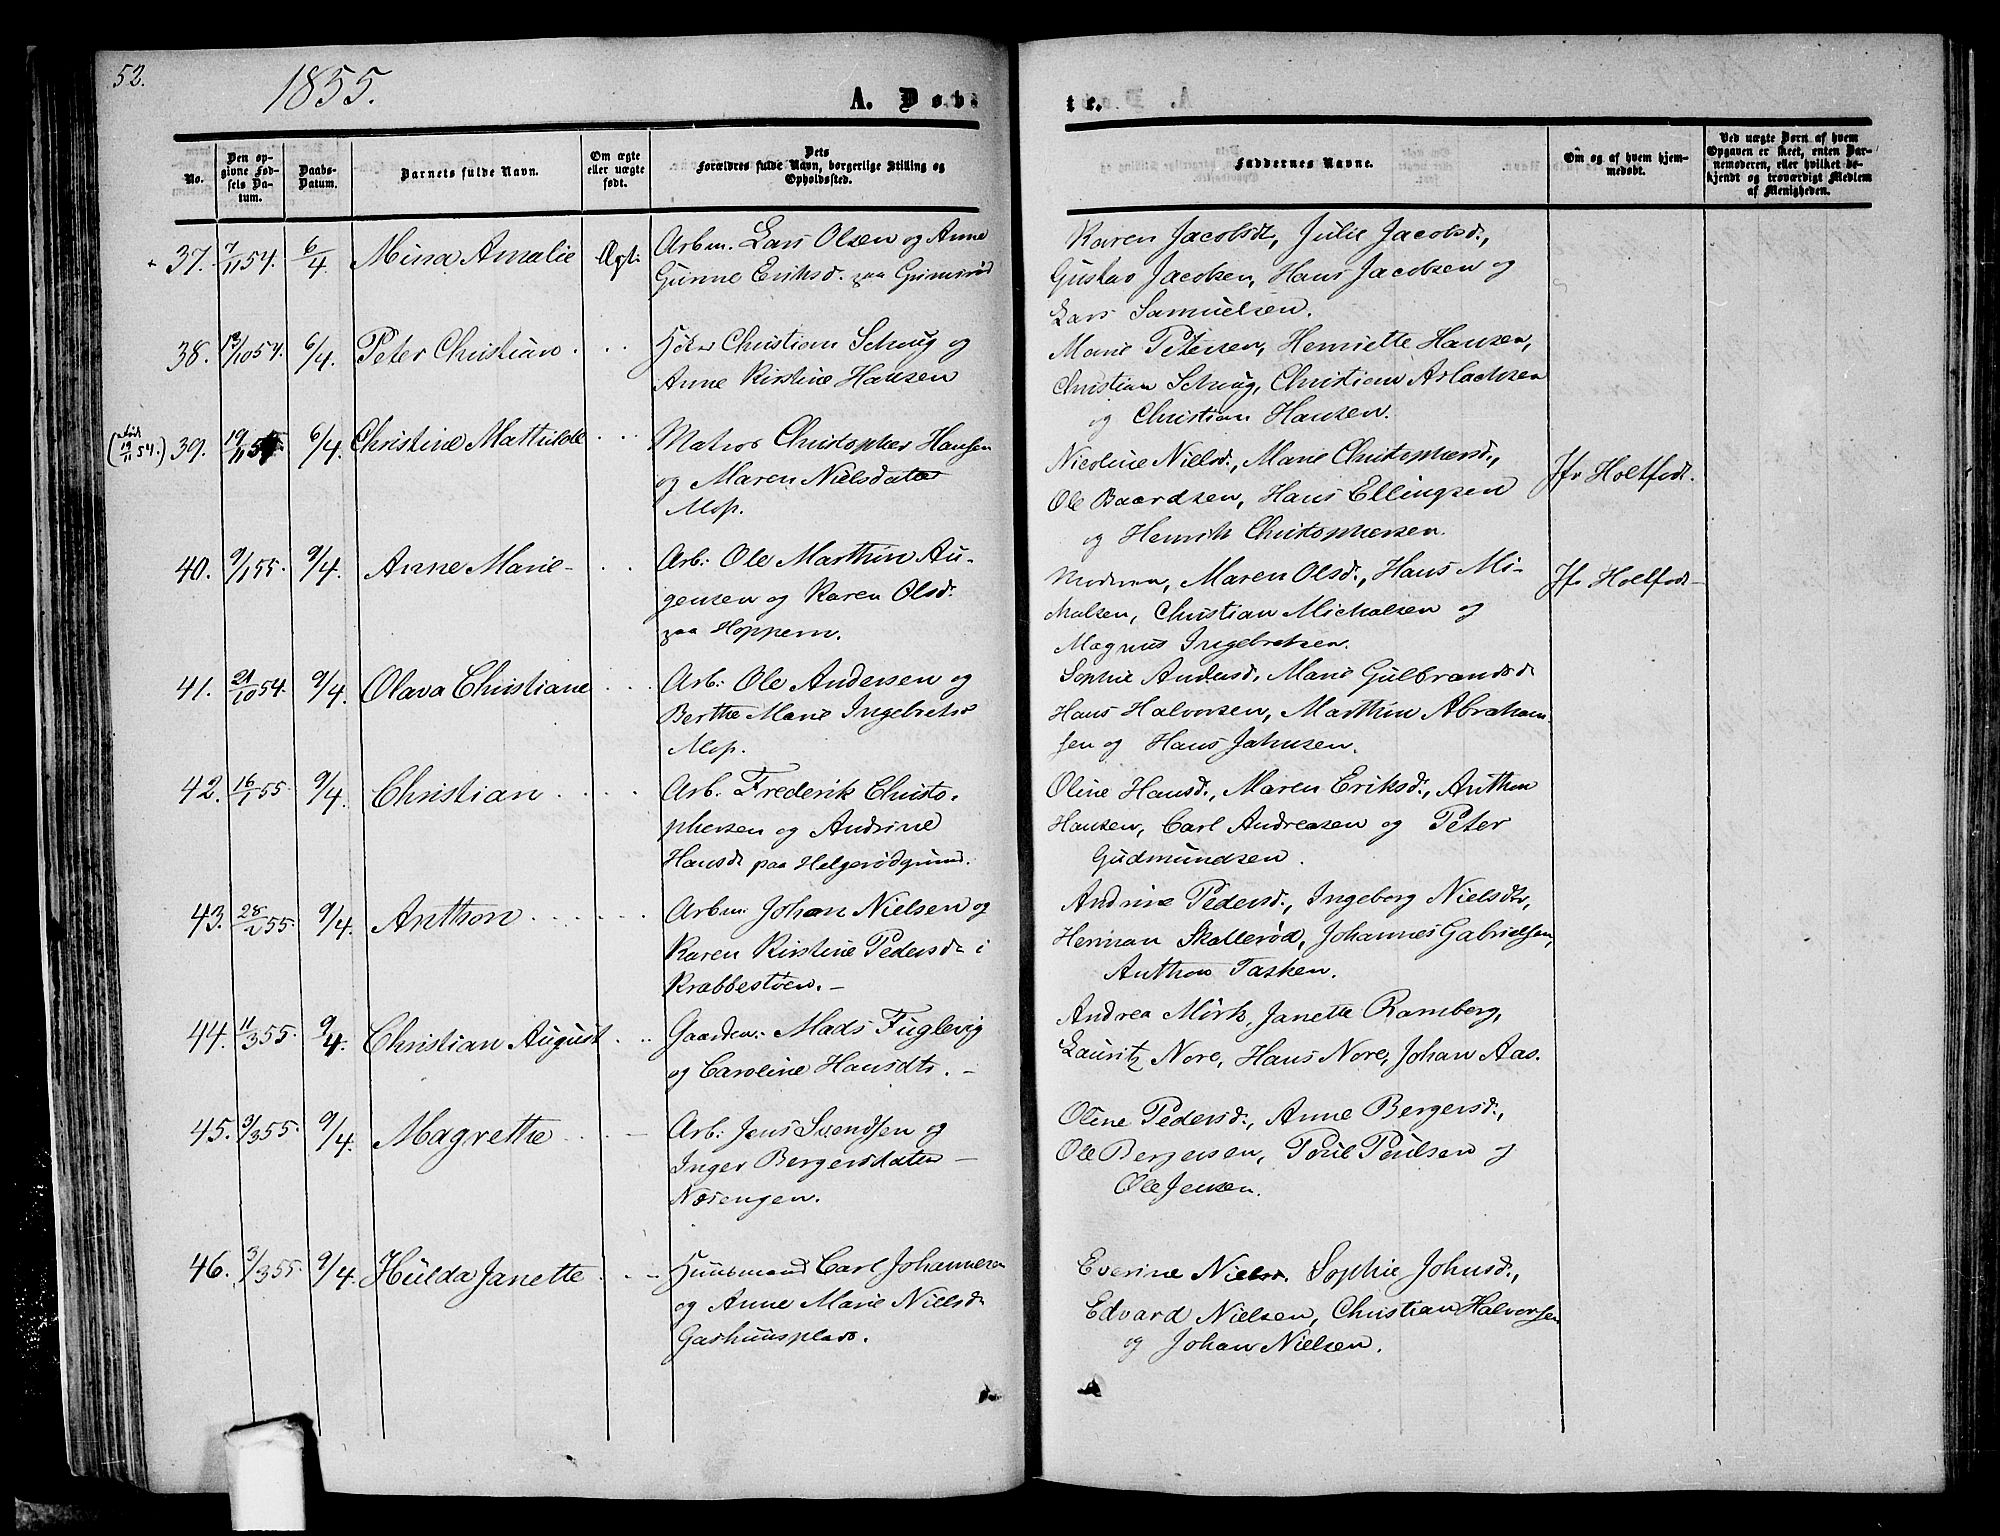 52.
1855.
A. Døb-
te.
No.
Den op-
givne Fød-
sels Da-
tum.
Daabs-
Datum.
Barnets fulde Navn.
Om ægte
eller uægte
født.
Dets
Forældres fulde Navn, borgerlige Stilling og
Opholdssted.
Faddernes Navne.
Om og af hvem hjem-
medøbt.
Ved uægte Børn af hvem
Opgaven er skeet, enten Bar-
nemoderen, eller hvilket be-
kjendt og troværdigt Medlem
af Menigheden.
37. 7/11 54. 6/4 Mina Amalie Ægt. Arbm. Lars Olsen og Anne
Gunne Eriksd. paa Grimsrød
Karen Jacobsdt, Julie Jacobsd.,
Gustav Jacobsen, Hans Jacobsen og
Lars Samuelsen.
38. 13/10 54. 6/4. Peter Christian . . . Christian Schaug og
Anne Kirstine Hansen
Marie Petersen, Henriette Hansen,
Christian Schaug, Christian Aslachsen
og Christian Hansen.
(født 19/11 54.) 39. 19/11 54 6/4. Christine Mathilde . . . Matros Christopher Hansen
og Maren Nielsdater
Mos.
Nicoline Nielsd., Marie Christophersd.,
Ole Baardsen, Hans Ellingsen
og Henrik Christophersen.
Jfr Holtfodt.
40. 9/1 55. 9/4. Anne Marie . . Arb: Ole Marthin Au-
gensen og Karen Olsd.
paa Hoppern.
Moderen, Maren Olsd., Hans Mi-
kalsen, Christian Michalsen og
Magnus Ingebretsen.
Jfr Holtfodt
41. 21/10 54. 9/4. Olava Christiane . . . Arb: Ole Andersen og
Berthe Marie Ingebretsd
Mos.
Sophie Andersd., Marie Gulbrandsd
Hans Halvorsen, Marthin Abraham-
sen og Hans Jahnsen.
42. 16/1 55 9/4. Christian . . . . Arb. Frederik Christo-
phersen og Andrine
Hansdt paa Helgerødgrund.
Oline Hansd., Maren Eriksd., Anthon
Hansen, Carl Andreasen og Peter
Gudmundsen.
43. 28/2 55. 9/4. Anthon . . . . . Arbm. Johan Nielsen og
Karen Kirstine Pedersd i
Krabbestøen.
Andrine Pedersd., Ingeborg Nielsdtr,
Herman Skallerød, Johannes Gabrielsen,
Anthon Tasken.
44. 11/3 55. 9/4. Christian August . .. Gaardm: Mads Fuglevig
og Caroline Hansdtr.
Andrea Mörk, Janette Ramberg,
Lauritz Nore, Hans Nore, Johan Aas.
45. 9/3 55. 9/4. Magrethe . . . Arb: Jens Svendsen og
Inger Bergersdater
Norengen.
Oline Pedersd., Anne Bergersd.,
Ole Bergersen, Poul Poulsen og
Ole Jensen.
46. 3/3 55. 9/4. Hulda Janette . . . Huusmand Carl Johannesen
og Anne Marie Nielsd
Gashuusplads.
Everine Nielsd. Sophie Johnsd.,
Edvard Nielsen, Christian Halvorsen
og Johan Nielsen.